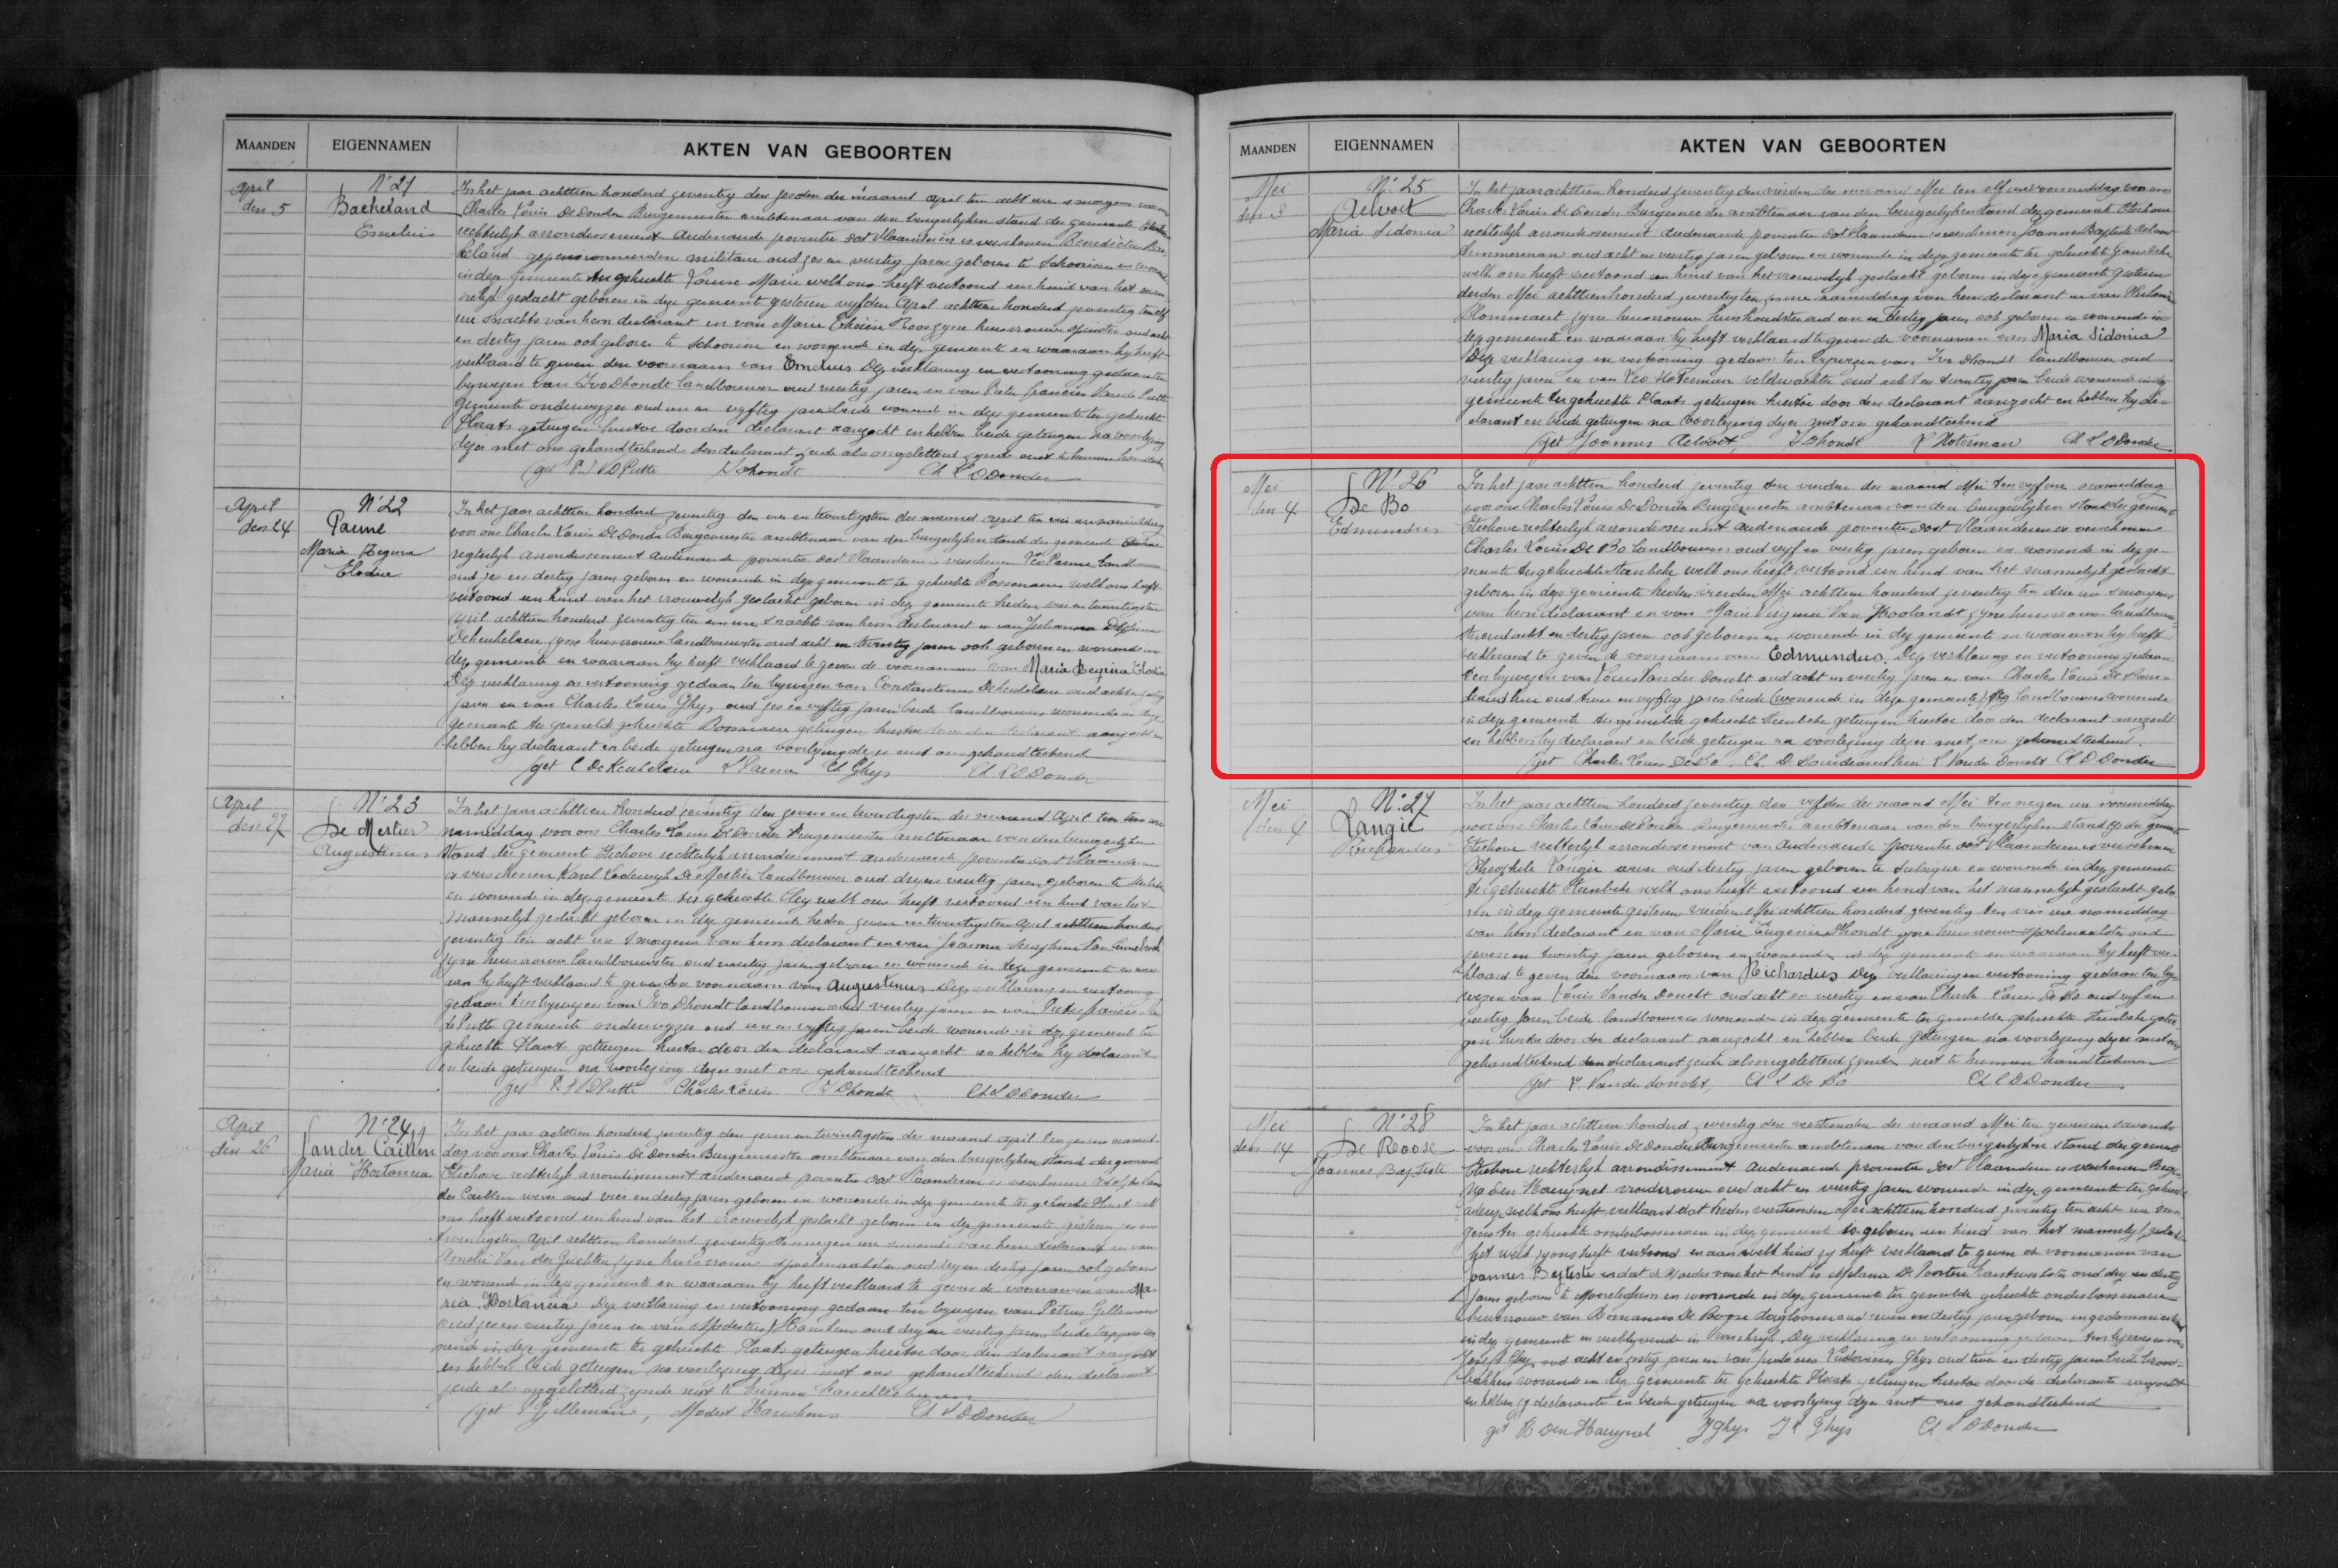 MAANDEN EIGENNAMEN AKTEN VAN GEBOORTEN
April den 5
N° 21
Backeland
Emelius
In het jaar achttien honderd zeventig den zesden der maand April ten acht ure s'morgens voor ons
Charles Louis De Donder Burgemeester ambtenaar van den burgerlyken stand der gemeente Etichove
rechterlyk arrondissement Audenaarde provintie Oost Vlaanderen is verschenen Benedictus Bac-
keland gepensionneerden militaire oud zes en veertig jaren geboren te Schoorisse en wonende
in deze gemeente ter gehuchte Louise Marie welk ons heeft vertoond een kind van het man-
nelyk geslacht geboren in deze gemeente gisteren vyfden April achttien honderd zeventig ten elf
ure s'nachts van hem declarant en van Marie Therese Roos zyne huisvrouw spinster oud acht
en dertig jaren ook geboren te Schoorisse en wonende in deze gemeente en waaraan hy heeft
verklaard te geven den voornaam van Emelius Deze verklaring en vertooning gedaan ten
bywezen van Ivo Dhondt landbouwer oud veertig jaren en van Pieter Francies Van de Putte
gemeente onderwyzer oud een en vyftig jaren beide wonend in deze gemeente ter gehuchte
Plaats getuigen hiertoe door den declarant aanzocht en hebben beide getuigen na voorlezing
dezer met ons gehandteekend den declarant zeide als ongeletterd zynde niet te kunnen handteekenen
get P. F. V D Putte I Dhondt Ch L D Donder
April den 24
N° 22
Parme
Maria Regina
Elodia
In het jaar achttien honderd zeventig den vier en twentigsten der maand April ten vier ure namiddag
voor ons Charles Louis De Donder Burgemeester ambtenaar van den burgerlyken stand der gemeente Etichove
regterlyk arrondissement Audenaarde provintie Oost Vlaanderen is verschenen Leo Parme landbouwer
oud zes en dertig jaren geboren en wonende in deze gemeente ter gehuchte Bossenaere welk ons heeft
vertoond een kind van het vrouwelyk geslacht geboren in deze gemeente heden vier en twentigsten
April achttien honderd zeventig ten een ure s'nachts van hem declarant en van Julianna Delphina
Dekeukeleire zyne huisvrouw landbouwster oud acht en twentig jaren ook geboren en wonende in
deze gemeente en waaraan hy heeft verklaard te geven de voornamen van Maria Regina Elodia
Deze verklaring en vertooning gedaan ten bywezen van Constantinus Dekeukeleire oud acht en
jaren en van Charles Louis Ghys, oud zes en vyftig jaren beide landbouwers wonende in deze
gemeente ter gemelde gehuchte Bossenaere getuigen hiertoe door den declarant aanzocht en
hebben hy declarant en beide getuigen na voorlezing dezer met ons gehandteekend
get C De Keukeleire L Parme Ch Ghys Ch L D Donder
April den 27
N° 23
De Mertier
Augustinus
In het jaar achttien honderd zeventig den zeven en twentigsten der maand April ten twee ure
namiddag voor ons Charles Louis De Donder Burgemeester ambtenaar van den burgerlyken
stand der gemeente Etichove rechterlyk arrondissement Audenaarde provintie Oost Vlaanderen
is verschenen Karel Lodewyk De Mertier landbouwer oud dry en veertig jaren geboren te
en wonende in deze gemeente ter gehuchte welk ons heeft vertoond een kind van het
mannelyk geslacht geboren in deze gemeente heden zeven en twentigsten April achttien honderd
zeventig ten acht ure s'morgens van hem declarant en van Joanna Seraphina Van
zyne huisvrouw landbouwster oud veertig jaren geboren en wonende in deze gemeente en waar-
aan hy heeft verklaard te geven den voornaam van Augustinus Deze verklaring en vertooning
gedaan ten bywezen van Ivo Dhondt landbouwer oud veertig jaren en van Pieter Francies Van
de Putte gemeente onderwyzer oud een en vyftig jaren beide wonende in deze gemeente ter
gehuchte Plaats getuigen hiertoe door den declarant aanzocht en hebben hy declarant
en beide getuigen na voorlezing dezer met ons gehandteekend
get P. F. V D Putte Charles Louis I Dhondt Ch L D Donder
April den 26
N° 24
Van der Caillen
Maria Hortancia
In het jaar achttien honderd zeventig den zeven en twintigsten der maand April ten zes ure namid-
dag voor ons Charles Louis De Donder Burgemeester ambtenaar van den burgerlyken stand der gemeente
Etichove rechterlyk arrondissement Audenaarde provintie Oost Vlaanderen is verschenen Adolphe Van
der Caillen wever oud vier en dertig jaren geboren en wonende in deze gemeente ter gehuchte welk
ons heeft vertoond een kind van het vrouwelyk geslacht geboren in deze gemeente gisteren zes en
twentigsten April achttien honderd zeventig ten negen ure s'avonds van hem declarant en van
Amelie Van der Guchten zyne huisvrouw spoelmaakster oud dry en dertig jaren ook geboren
en wonend in deze gemeente en waaraan hy heeft verklaard te geven de voornamen van Ma-
ria Hortancia Deze verklaring en vertooning gedaan ten bywezen van Petrus Gilleman
oud zes en veertig jaren en van Modestus Hanskens oud dry en veertig jaren beide wo-
nend in deze gemeente ter gehuchte Plaats getuigen hiertoe door den declarant aanzocht
en hebben beide getuigen na voorlezing dezer met ons gehandteekend den declarant
zeide als ongeletterd zynde niet te kunnen handteekenen
get P Gilleman, Modest Hanskens Ch L D Donder
MAANDEN EIGENNAMEN AKTEN VAN GEBOORTEN
Mei den 3
N° 25
Aelvoet
Maria Sidonia
In het jaar achttien honderd zeventig den vierden der maand Mei ten elf ure voormiddag voor ons
Charles Louis De Donder Burgemeester ambtenaar van den burgerlyken stand der gemeente Etichove
rechterlyk arrondissement Audenaarde provintie Oost Vlaanderen is verschenen Joannes Baptiste Aelvoet
timmerman oud acht en veertig jaren geboren en wonende in deze gemeente ter gehuchte
welk ons heeft vertoond een kind van het vrouwelyk geslacht geboren in deze gemeente gisteren
derden Mei achttien honderd zeventig ten ure namiddag van hem declarant en van
Blommaert zyne huisvrouw huishoudster oud een en dertig jaren ook geboren en wonende in
deze gemeente en waaraan hy heeft verklaard te geven de voornamen van Maria Sidonia
Deze verklaring en vertooning gedaan ten bywezen van Ivo Dhondt landbouwer oud
veertig jaren en van Leo Noterman veldwachter oud acht en twentig jaren beide wonende in deze
gemeente ter gehuchte Plaats getuigen hiertoe door den declarant aanzocht en hebben hy de-
clarant en beide getuigen na voorlezing dezer met ons gehandteekend
get Joannes Aelvoet, I Dhondt L Noterman Ch L D Donder
Mei den 4
N° 26
De Bo
Edmundus
In het jaar achttien honderd zeventig den vierden der maand Mei ten vyf ure namiddag
voor ons Charles Louis De Donder Burgemeester ambtenaar van den burgerlyken stand der gemeente
Etichove rechterlyk arrondissement Audenaarde provintie Oost Vlaanderen is verschenen
Charles Louis De Bo landbouwer oud vyf en veertig jaren geboren en wonende in deze ge-
meente ter gehuchte Steenbeke welk ons heeft vertoond een kind van het mannelyk geslacht
geboren in deze gemeente heden vierden Mei achttien honderd zeventig ten drie ure s'morgens
van hem declarant en van Marie Virginie Van Hoolandt zyne huisvrouw landbouw-
ster oud acht en dertig jaren ook geboren en wonende in deze gemeente en waaraan hy heeft
verklaard te geven de voornaam van Edmundus. Deze verklaring en vertooning gedaan
ten bywezen van Louis Van der Donckt oud acht en veertig jaren en van Charles Louis De Doui-
deauthui oud twee en vyftig jaren beide (wonende in deze gemeente) landbouwers wonende
in deze gemeente ter gemelde gehuchte Steenbeke getuigen hiertoe door den declarant aanzocht
en hebben hy declarant en beide getuigen na voorlezing dezer met ons gehandteekend.
get Charles Louis De Bo. Ch. D. L Van der Donckt Ch L D Donder
Mei den 4
N° 27
Langie
Richardus
In het jaar achttien honderd zeventig den vyfden der maand Mei ten negen ure voormiddag
voor ons Charles Louis De Donder Burgemeester ambtenaar van den burgerlyken stand der gemeente
Etichove rechterlyk arrondissement van Audenaerde provintie Oost Vlaanderen is verschenen
Theophile Langie wever oud dertig jaren geboren te Sulsique en wonende in deze gemeente
ter gehucht Steenbeke welk ons heeft vertoond een kind van het mannelyk geslacht gebo-
ren in deze gemeente gisteren vierden Mei achttien honderd zeventig ten vier ure namiddag
van hem declarant en van Marie Eugenie Dhondt zyne huisvrouw spoelmaakster oud
zeven en twentig jaren geboren en wonende in deze gemeente en waaraan hy heeft ver-
klaard te geven den voornaam van Richardus Deze verklaring en vertooning gedaan ten by-
wezen van Louis Vander Donckt oud acht en veertig en van Charle Louis De Bo oud vyf en
veertig jaren beide landbouwers wonende in deze gemeente ter gemelde gehuchte Steenbeke getui-
gen hiertoe door den declarant aanzocht en hebben beide getuigen na voorlezing dezer met ons
gehandteekend den declarant zeide als ongeletterd zynde niet te kunnen handteekenen
get L. Van der donckt, Ch L De Bo Ch L D Donder
Mei den 14
N° 28
De Roose
Joannes Baptiste
In het jaar achttien honderd zeventig den veertienden der maand Mei ten zeven ure s'avonds
voor ons Charles Louis De Donder Burgemeester ambtenaar van den burgerlyken stand der gemeente
Etichove rechterlyk arrondissement Audenaerde provintie Oost Vlaanderen is verschenen Regi-
na Den Haeynel vroedvrouw oud acht en veertig jaren wonende in deze gemeente ter gehuchte
welk ons heeft verklaard dat heden veertienden Mei achttien honderd zeventig ten acht ure s'mor-
gens ter gehuchte onderbossenaere in deze gemeente is geboren een kind van het mannelyk geslacht
het welk zy ons heeft vertoond en aan welk kind zy heeft verklaard te geven de voornamen van
Joannes Baptiste en dat de moeder van het kind is Melania De Poortere kantwerkster oud dry en dertig
jaren geboren te en wonende in deze gemeente ter gemelde gehuchte onderbossenaere
huisvrouw van Romanus De Roose daglooner oud zeven en dertig jaren geboren en gedomicilieerd
in deze gemeente en verblyvende in Frankryk. Deze verklaring en vertooning gedaan ten bywezen van
Joseph Ghys oud acht en zestig jaren en van Ludovicus Ghys oud twee en dertig jaren beide brood-
bakkers wonende in deze gemeente ter gehuchte Plaats getuigen hiertoe door de declarante aanzocht
en hebben zy declarante en beide getuigen na voorlezing dezer met ons gehandteekend
get R Den Haeynel J Ghys J L Ghys Ch L D Donder